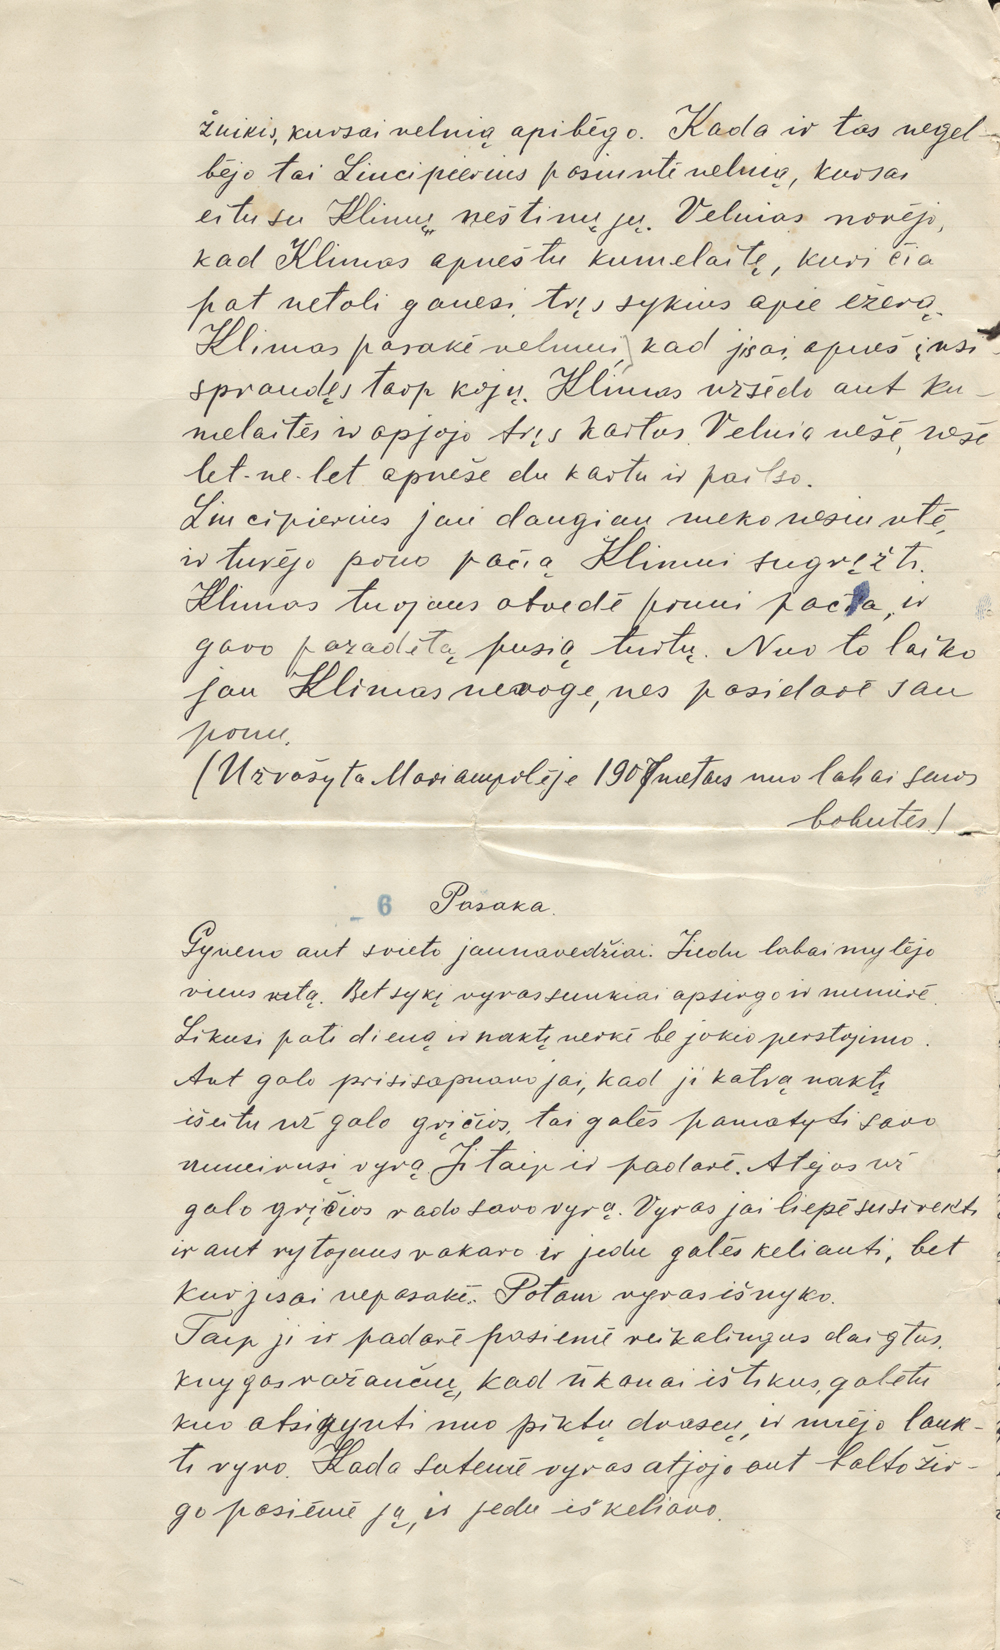 žuikis, kursai velnią apibėgo. Kada ir tas negel-
bėjo tai Liucipierius posiuntė velnią, kursai
eitu su Klimų neštinų jų. Velnias norėjo,
kad Klimas apneštu kumelaitę, kuri čia
pat netoli ganėsi, tręs sykius apie ežerą.
Klimas pasakė velniui, kad jisai apneš įnsi-
spraudęs tarp kojų. Klimas užsėdo ant ku-
melaitės ir apjojo tręs kartus. Velnia nešė, nešė
let-ne-let apnešė du kartu ir pailso.
Liucipierius jau daugiau nieko nesiuntė,
ir turėjo pono pačią Klimui sugrężti.
Klimas tuojaus atvedė ponui pačia, ir
gavo pazadėtą pusią turtų. Nuo to laiko
jau Klimas nevogė, nes pasidarė sau
ponu.
(Užrašyta Mariampolėje 1907 metais nuo labai senos
bobutės)
6 Pasaka.
Gyveno ant svieto jaunavedžiai. Jiedu labai mylėjo
viens kitą. Bet sykį vyras sunkiai apsirgo ir numirė.
Likusi pati dieną ir naktį verkė be jokio perstojimo.
Ant galo prisisapnavo jai, kad ji katrą naktį
išeitu už galo gryčios, tai galės pamatyti savo
numirusį vyrą. Ji taip ir padarė. Atėjos už
galo gryčios rado savo vyrą. Vyras jai liepė susirekti
ir ant rytojaus vakaro ir jedu galės keliauti, bet
kur jisai nepasakė. Potam vyras išnyko.
Taip ji ir padarė pasiėmė reikalingus daigtus,
knygas ražančių, kad ūkanai ištikus, galėtu
kuo atsigynti nuo piktų dvasių, ir nuėjo lauk-
ti vyro. Kada sutemė vyras atjojo ant balto žir-
go pasiėmė ją, ir jedu iškeliavo.